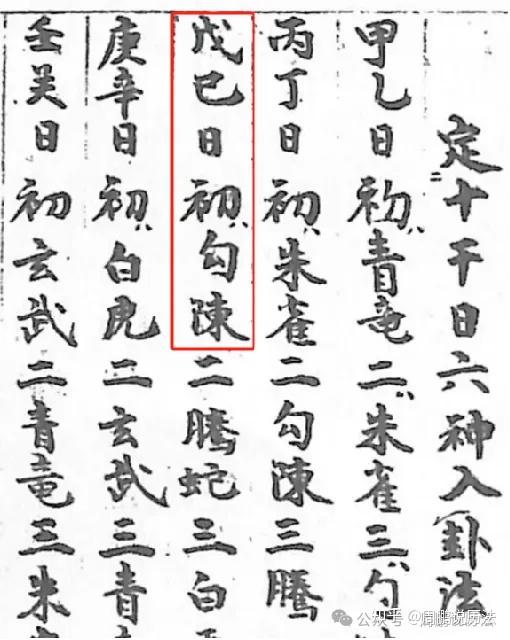 定十干日六神入卦法
甲乙日初青竜二朱雀三勾
丙丁日初朱雀二勾陳三騰
戊巳日初勾陳二騰蛇三白
庚辛日初白虎二玄武三青
壬癸日初玄武二青竜三朱
公众号 @周鹏说历法